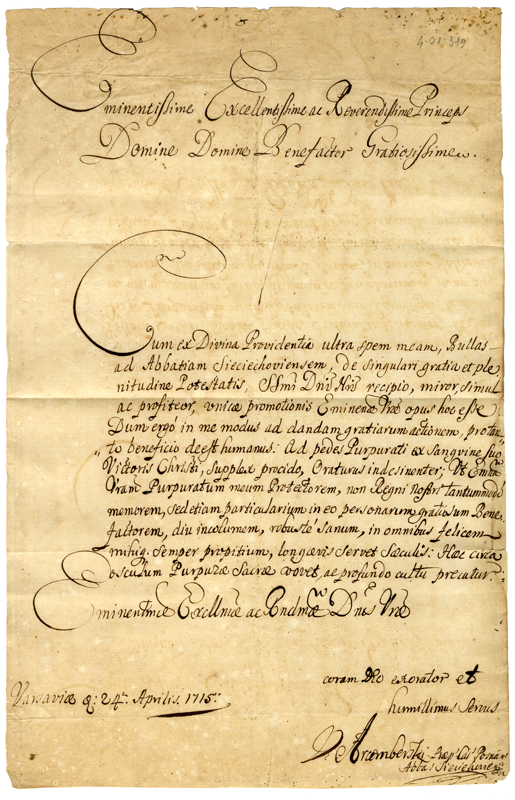 4-01-319
Eminentissime Excellentissime ac Reverendissime Princeps
Domine Domine Benefactor Gratiosissime.
Cum ex Divina Providentia ultra spem meam, Bullas
ad Abbatiam Sieciechoviensem, de singulari gratia et ple
nitudine Potestatis, SSmi Dni Nri recipio, miror, simul
ac profiteor, unicæ promotionis Eminenæ Vræ opus hoc esse
Dum ergo in me modus ad dandam gratiarum actionem, pro tan
to beneficio deest humanus: Ad pedes Purpurati ex sanguine suo
Victoris Christi, supplex procido, Oraturus indesinenter; Ut Emitia
Vram Purpuratum meum Protectorem, non Regni Nostri tantummodo
memorem, sed etiam particularium in eo personarum gratiosum Bene
factorem, diu incolumem, robustè sanum, in omnibus felicem
mihiq. semper propitium, longævis servet Sæculis: Hæc circa
osculum Purpuræ Sacræ vovet, ac profundo cultu precatur.
Eminentiæ Excellmæ ac Rndmæ Dnis Vræ
coram Deo exorator et
humillimus Servus
Varsaviæ d: 24ta Aprilis. 1715.
Præp. Posnan
Abbas